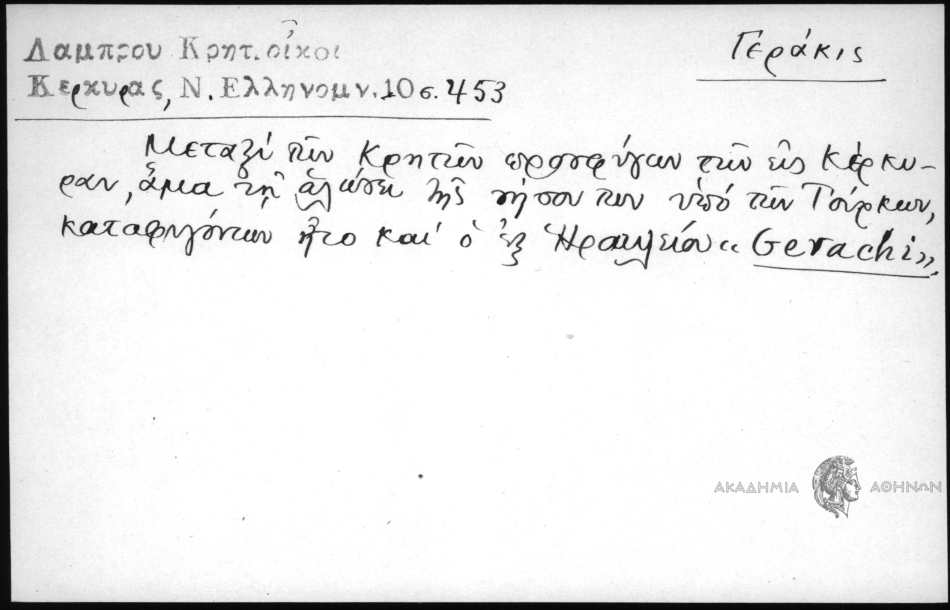 Λαμπρου Κρητ. οἶκοι
Κερκυρας, Ν. Ελληνομν. 10 σ. 453
Γεράκις
Μεταξύ τῶν Κρητῶν προσφύγων τῶν εἰς Κέρκυ-
ραν, ἅμα τῇ ἁλώσει τῆς νήσου των ὑπό τῶν Τούρκων,
καταφυγόντων ἦτο καί ὁ ἐξ Ἡρακλείου «Gerachi».
ΑΚΑΔΗΜΙΑ ΑΘΗΝΩΝ